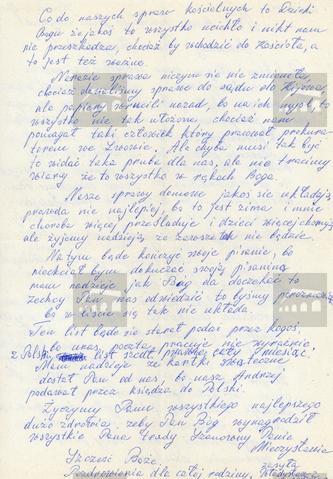 Co do naszych spraw kościelnych to Dzięki
Bogu że jakoś to wszystko ucichło i nikt nam
nie przeszkadza, chociaż by wchodzić do Kościoła, a
to jest też ważne.
Niestety sprawa niczym się nie zmieniła
chociaż dawaliśmy sprawę do sądu do Kijowa
ale papiery wrócili nazad, bo na ich mysl to
wszystko nie tak ułożone, chociaż nam
pomagał taki człowiek który pracował prokura-
torem we Lwowie. Ale chyba musi tak być
to widać taka pruba dla nas, ale nie tracimy
wiary że to wszystko w rękach Boga.
Nasze sprawy domowe jakoś się układają
prawda nie najlepiej, bo to jest zima i mnie
choroba więcej prześladuje i dzieci więcej chorują
ale żyjemy nadzieją że zawsze tak nie będzie.
Na tym będę kończyć swoje pisanie, bo
niechciał bym dokuczać swoją pisaniną
mam nadzieję jak Bóg da doczekać to
zechcy Pan nas odwiedzić to byśmy porozmawiali
bo w liście się tak nie układa.
Ten list będę się starał podać przez kogoś,
bo u nas poczta pracuje nie
z Polski list szedł cały miesiąc.
Mam nadzieję że kartki
dostał Pan od nas, bo nasz Andrzej
podawał przez księdza do Polski.
Życzymy Panu wszystkiego najlepszego
dużo zdrowia. żeby Pan Bóg wynagrodził
wszystkie Pana trudy Szanowny Panie
Mieczysławie
Szczęść Boże.
Pozdrowienia dla całej rodziny,